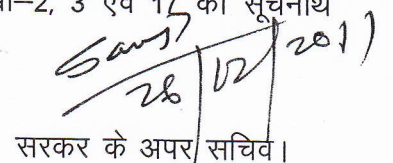 –2, 3 एवं 17 को सूचनार्थ
28/12/2011
सरकर के अपर सचिव।